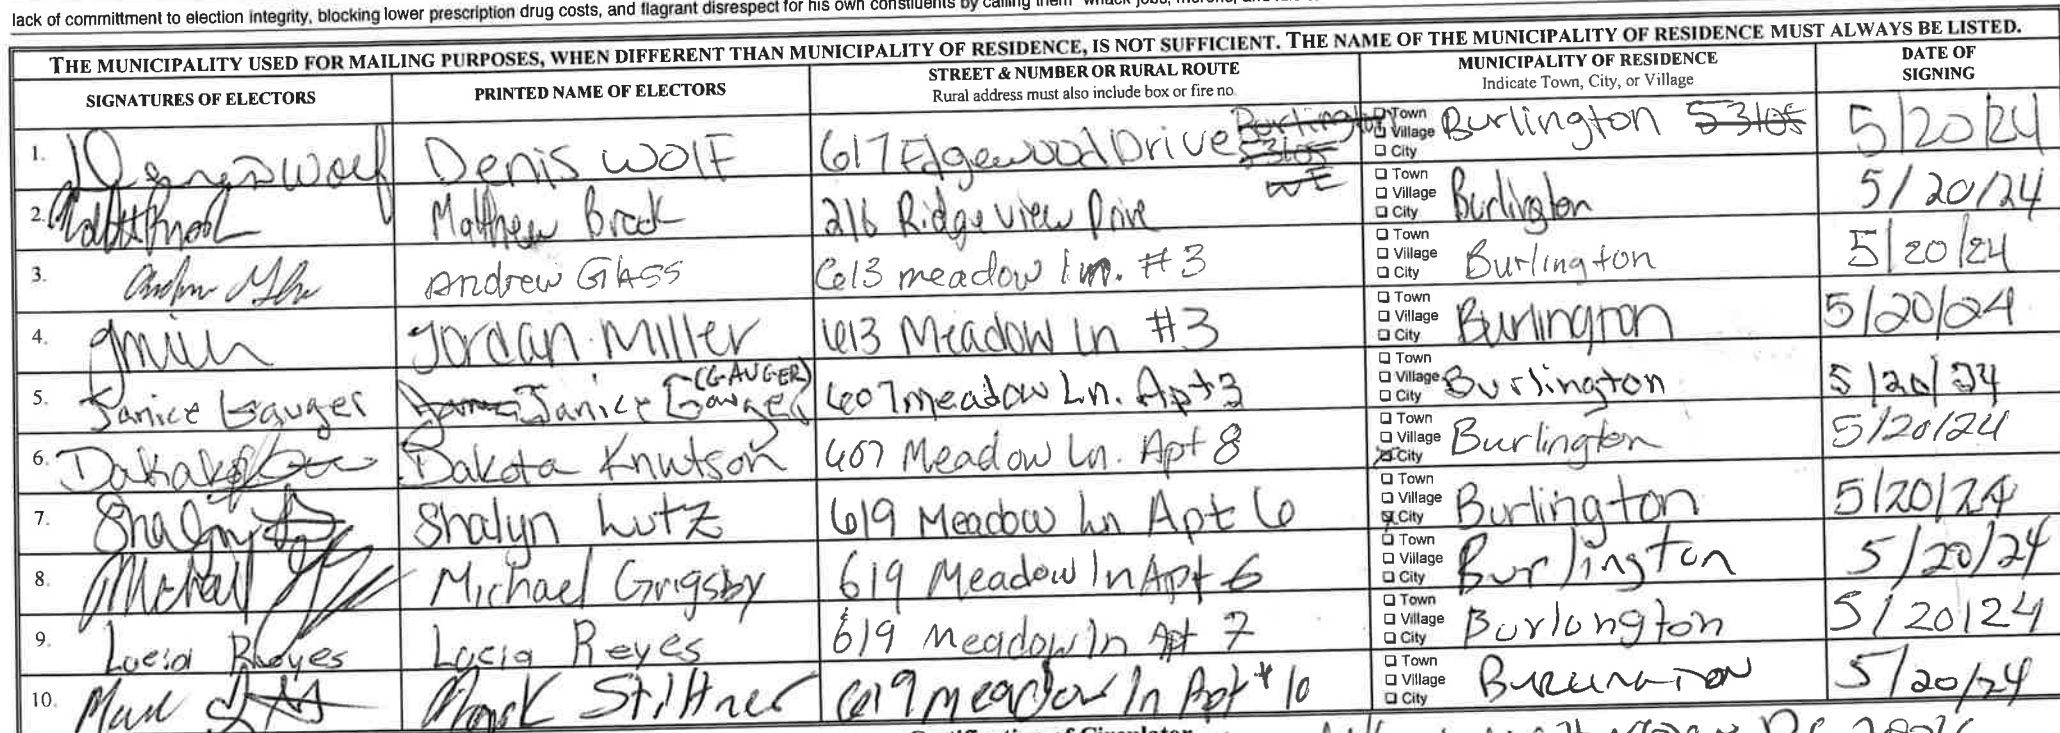 lack of committment to election integrity, blocking lower prescription drug costs, and flagrant disrespect for his own constiuents by calling them
THE MUNICIPALITY USED FOR MAILING PURPOSES, WHEN DIFFERENT THAN MUNICIPALITY OF RESIDENCE, IS NOT SUFFICIENT. THE NAME OF THE MUNICIPALITY OF RESIDENCE MUST ALWAYS BE LISTED.
SIGNATURES OF ELECTORS PRINTED NAME OF ELECTORS STREET & NUMBER OR RURAL ROUTE Rural address must also include box or fire no. MUNICIPALITY OF RESIDENCE Indicate Town, City, or Village DATE OF SIGNING
1. Denis Wolf Denis Wolf 617 Edgewood Drive Burlington 53105 WI Town Village City Burlington 53105 5/20/24
2. Matthew Brook 216 Ridge view Drive Town Village City Burlington 5/20/24
3. Andrew Glass 613 meadow ln. #3 Town Village City Burlington 5/20/24
4. Jordan Miller 613 Meadow Ln #3 Town Village City Burlington 5/20/24
5. Janice Gauger Janice Gauger (GAUGER) 607 meadow Ln. Apt 3 Town Village City Burlington 5/20/24
6. Dakota Knutson 607 Meadow Ln. Apt 8 Town Village City Burlington 5/20/24
7. Shalyn Shalyn Lutz 619 Meadow Ln Apt 6 Town Village City Burlington 5/20/24
8. Michael Michael Grigsby 619 Meadow ln Apt 6 Town Village City Burlington 5/20/24
9. Lucia Reyes Lucia Reyes 619 Meadow ln Apt 7 Town Village City Burlongton 5/20/24
10. Mark Mark Stiltner 619 meadow ln Apt # 10 Town Village City Burlington 5/20/24